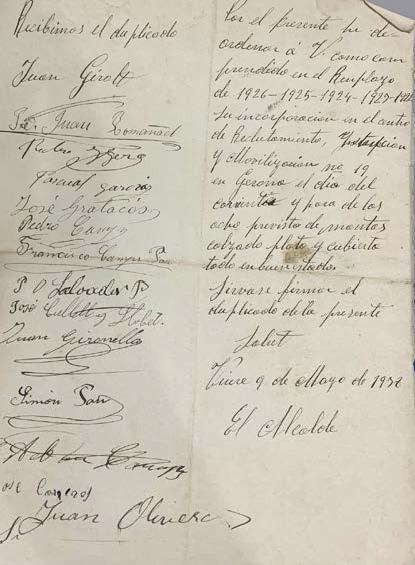 Recibimos el duplicado
Juan Girolt
Juan Romañach
Pedro
Pascual Garcia
José Gratacós
Pedro Camps
Francisco Camps Pau
P O Salvador P
José Cullell y Llobet.
Juan Gironella
Simón Pau
José Carreras
Juan Oliveras
Por el presente
ordenar á V. como com
prendido en el Remplazo
de 1926-1925-1924-1923-1922
su incorporacion en el centro
de Reclutamiento,
y Movilizacion no 19
en Gerona el dia del
corriente y hora de las
ocho previsto de mantas
calzado plato y cubierto
todo en buen estado.
Sirvase firmar el
duplicado de la presente
Salut
9 de Mayo de 1938
El Alcalde